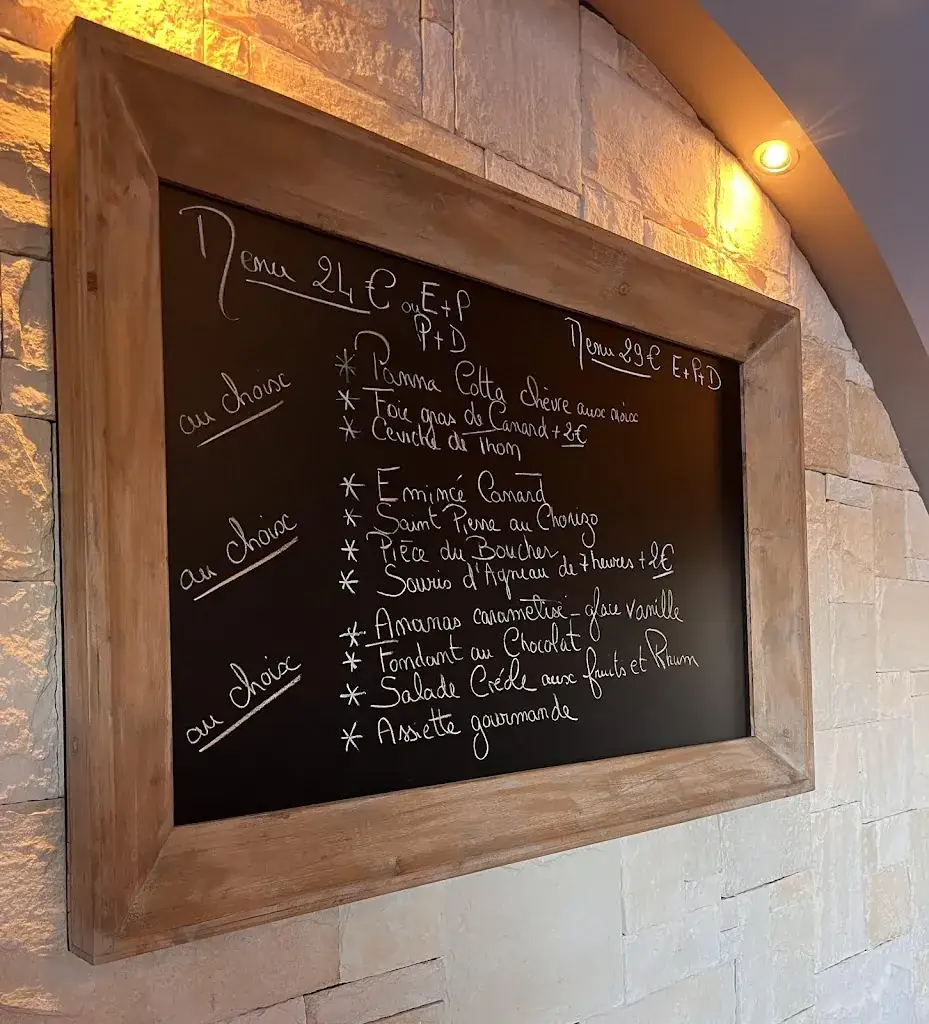 Menu 24 € ou E+P
P+D
Menu 29 € E+P+D
au choix
* Panna Cotta chèvre aux noix
* Foie gras de Canard + 2€
* Ceviche de Thon
au choix
* Emincé Canard
* Saint Pierre au Chorizo
* Pièce du Boucher
* Souris d'Agneau de 7 heures + 2€
au choix
* Ananas caramélisé - glace vanille
* Fondant au Chocolat
* Salade Créole aux fruits et Rhum
* Assiette gourmande